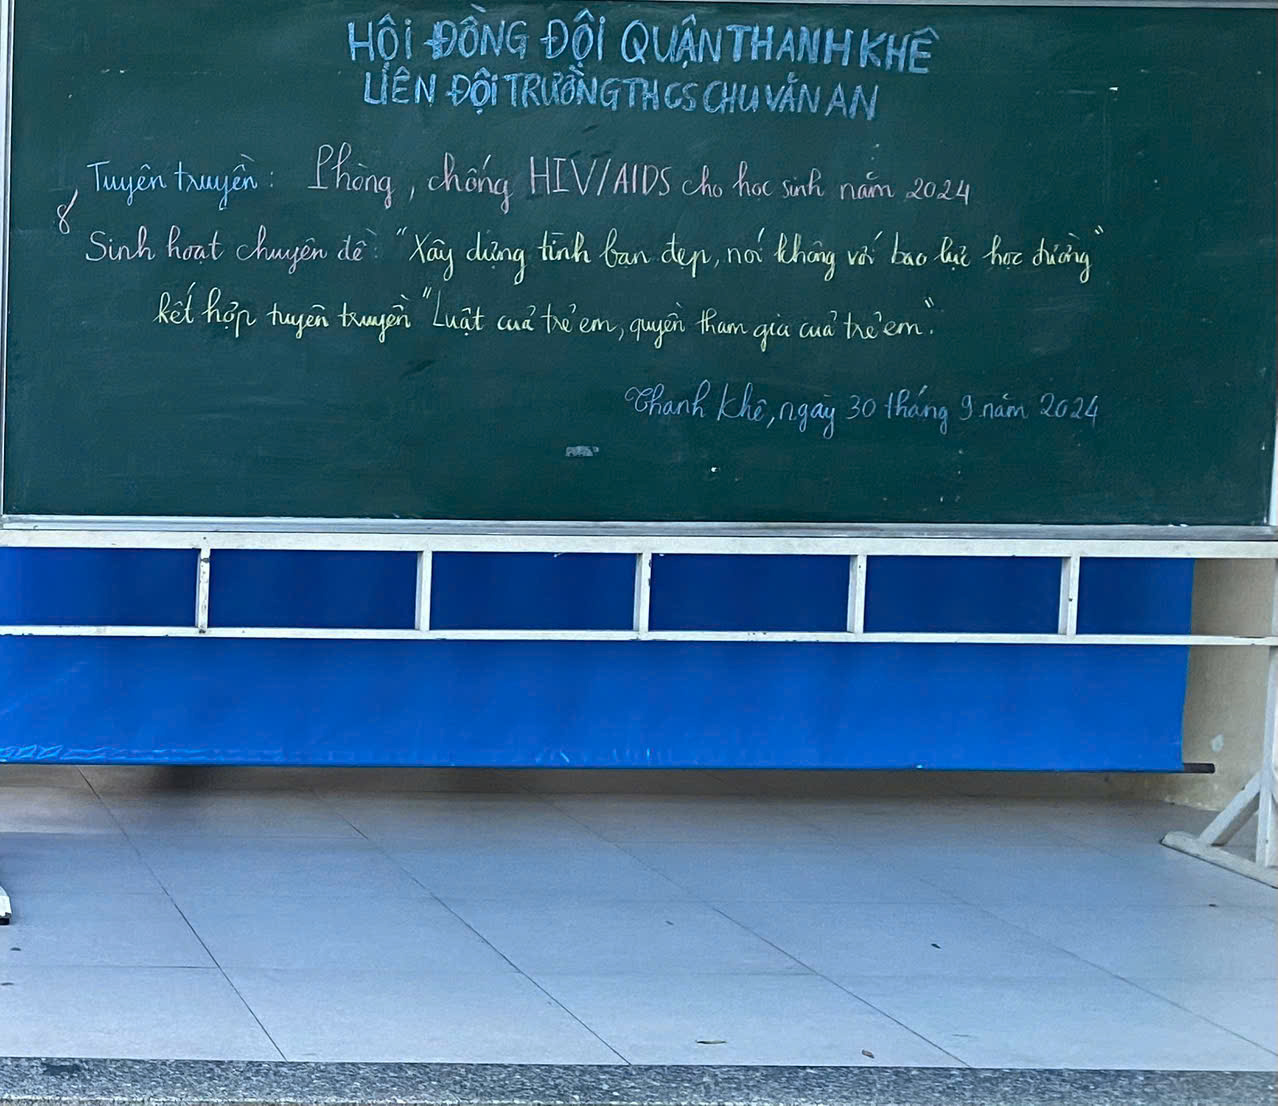 HỘI ĐỒNG ĐỘI QUẬN THANH KHÊ
LIÊN ĐỘI TRƯỜNG THCS CHU VĂN AN
Tuyên truyền: Phòng, chống HIV/AIDS cho học sinh năm 2024
Sinh hoạt chuyên đề: "Xây dựng tình bạn đẹp, nói không với bạo lực học đường"
kết hợp tuyên truyền "Luật của trẻ em, quyền tham gia của trẻ em".
Thanh Khê, ngày 30 tháng 9 năm 2024